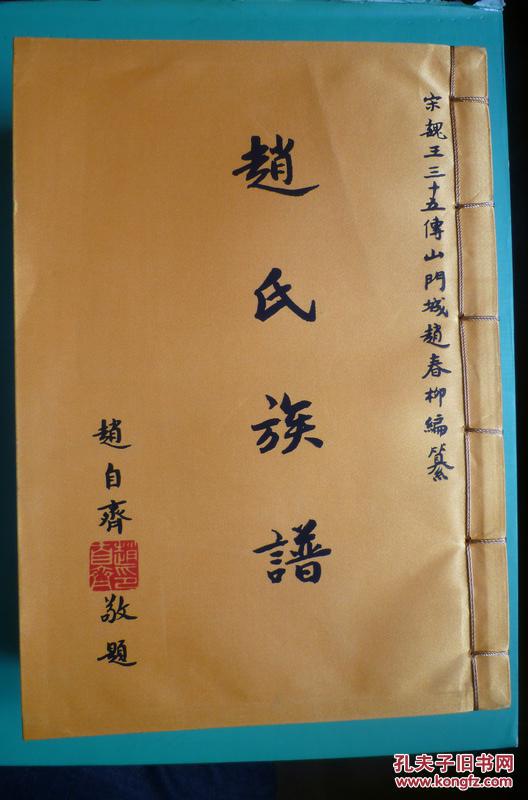 宋魏王三十五傳山門城趙春柳編纂
趙氏族譜
趙自齊
趙自齊印
敬題
孔夫子旧书网
www.kongfz.com